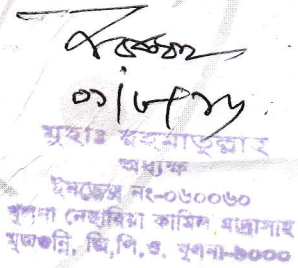 ০১/৮/১৬
মুহাঃ রহমাতুল্লাহ
অধ্যক্ষ
ইনডেক্স নং-০৬০০৬০
খুলনা নেছারিয়া কামিল মাদ্রাসাহ
মুজগুন্নি, জি,পি,ও, খুলনা-৯০০০